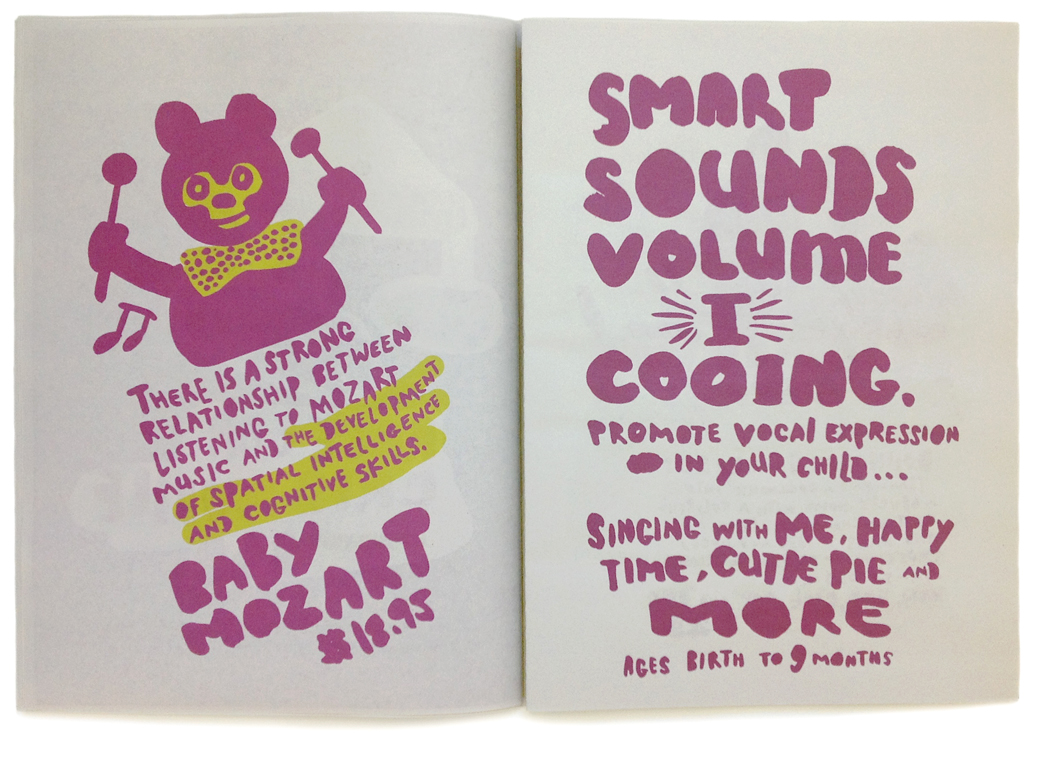 THERE IS A STRONG
RELATIONSHIP BETWEEN
LISTENING TO MOZART
MUSIC AND THE DEVELOPMENT
OF SPATIAL INTELLIGENCE
AND COGNITIVE SKILLS.
BABY
MOZART
$18.95
SMART
SOUNDS
VOLUME
I
COOING.
PROMOTE VOCAL EXPRESSION
IN YOUR CHILD...
SINGING WITH ME, HAPPY
TIME, CUTIE PIE AND
MORE
AGES BIRTH TO 9 MONTHS